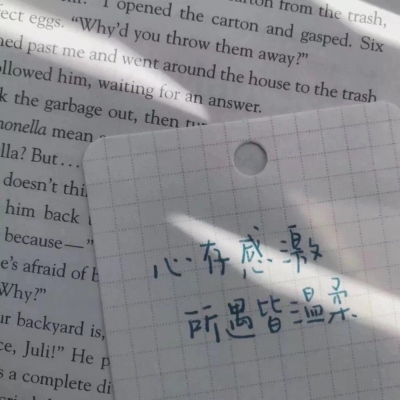 carton from the trash,
I opened the carton and gasped. Six
fect eggs. “Why’d you throw them away?”
past me and went around the house to the trash
ollowed him, waiting for an answer.
the garbage out, then
monella mean
lla? But . . .
doesn’t
him back
because—”
e’s afraid of
Why?”
ur backyard is,
ce, Juli!” He
s a complete
心存感激
所遇皆温柔